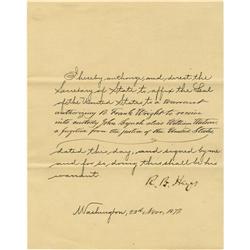 I hereby authorize and direct the
Secretary of State to affix the Seal
of the United States to a Warrant
authorizing B. Frank Wright to receive
into custody John Lynch alias William
a fugitive from the justice of the United States
dated this day, and signed by me
and for so doing this shall be his
warrant.
R. B. Hayes
Washington, 23d Nov, 187